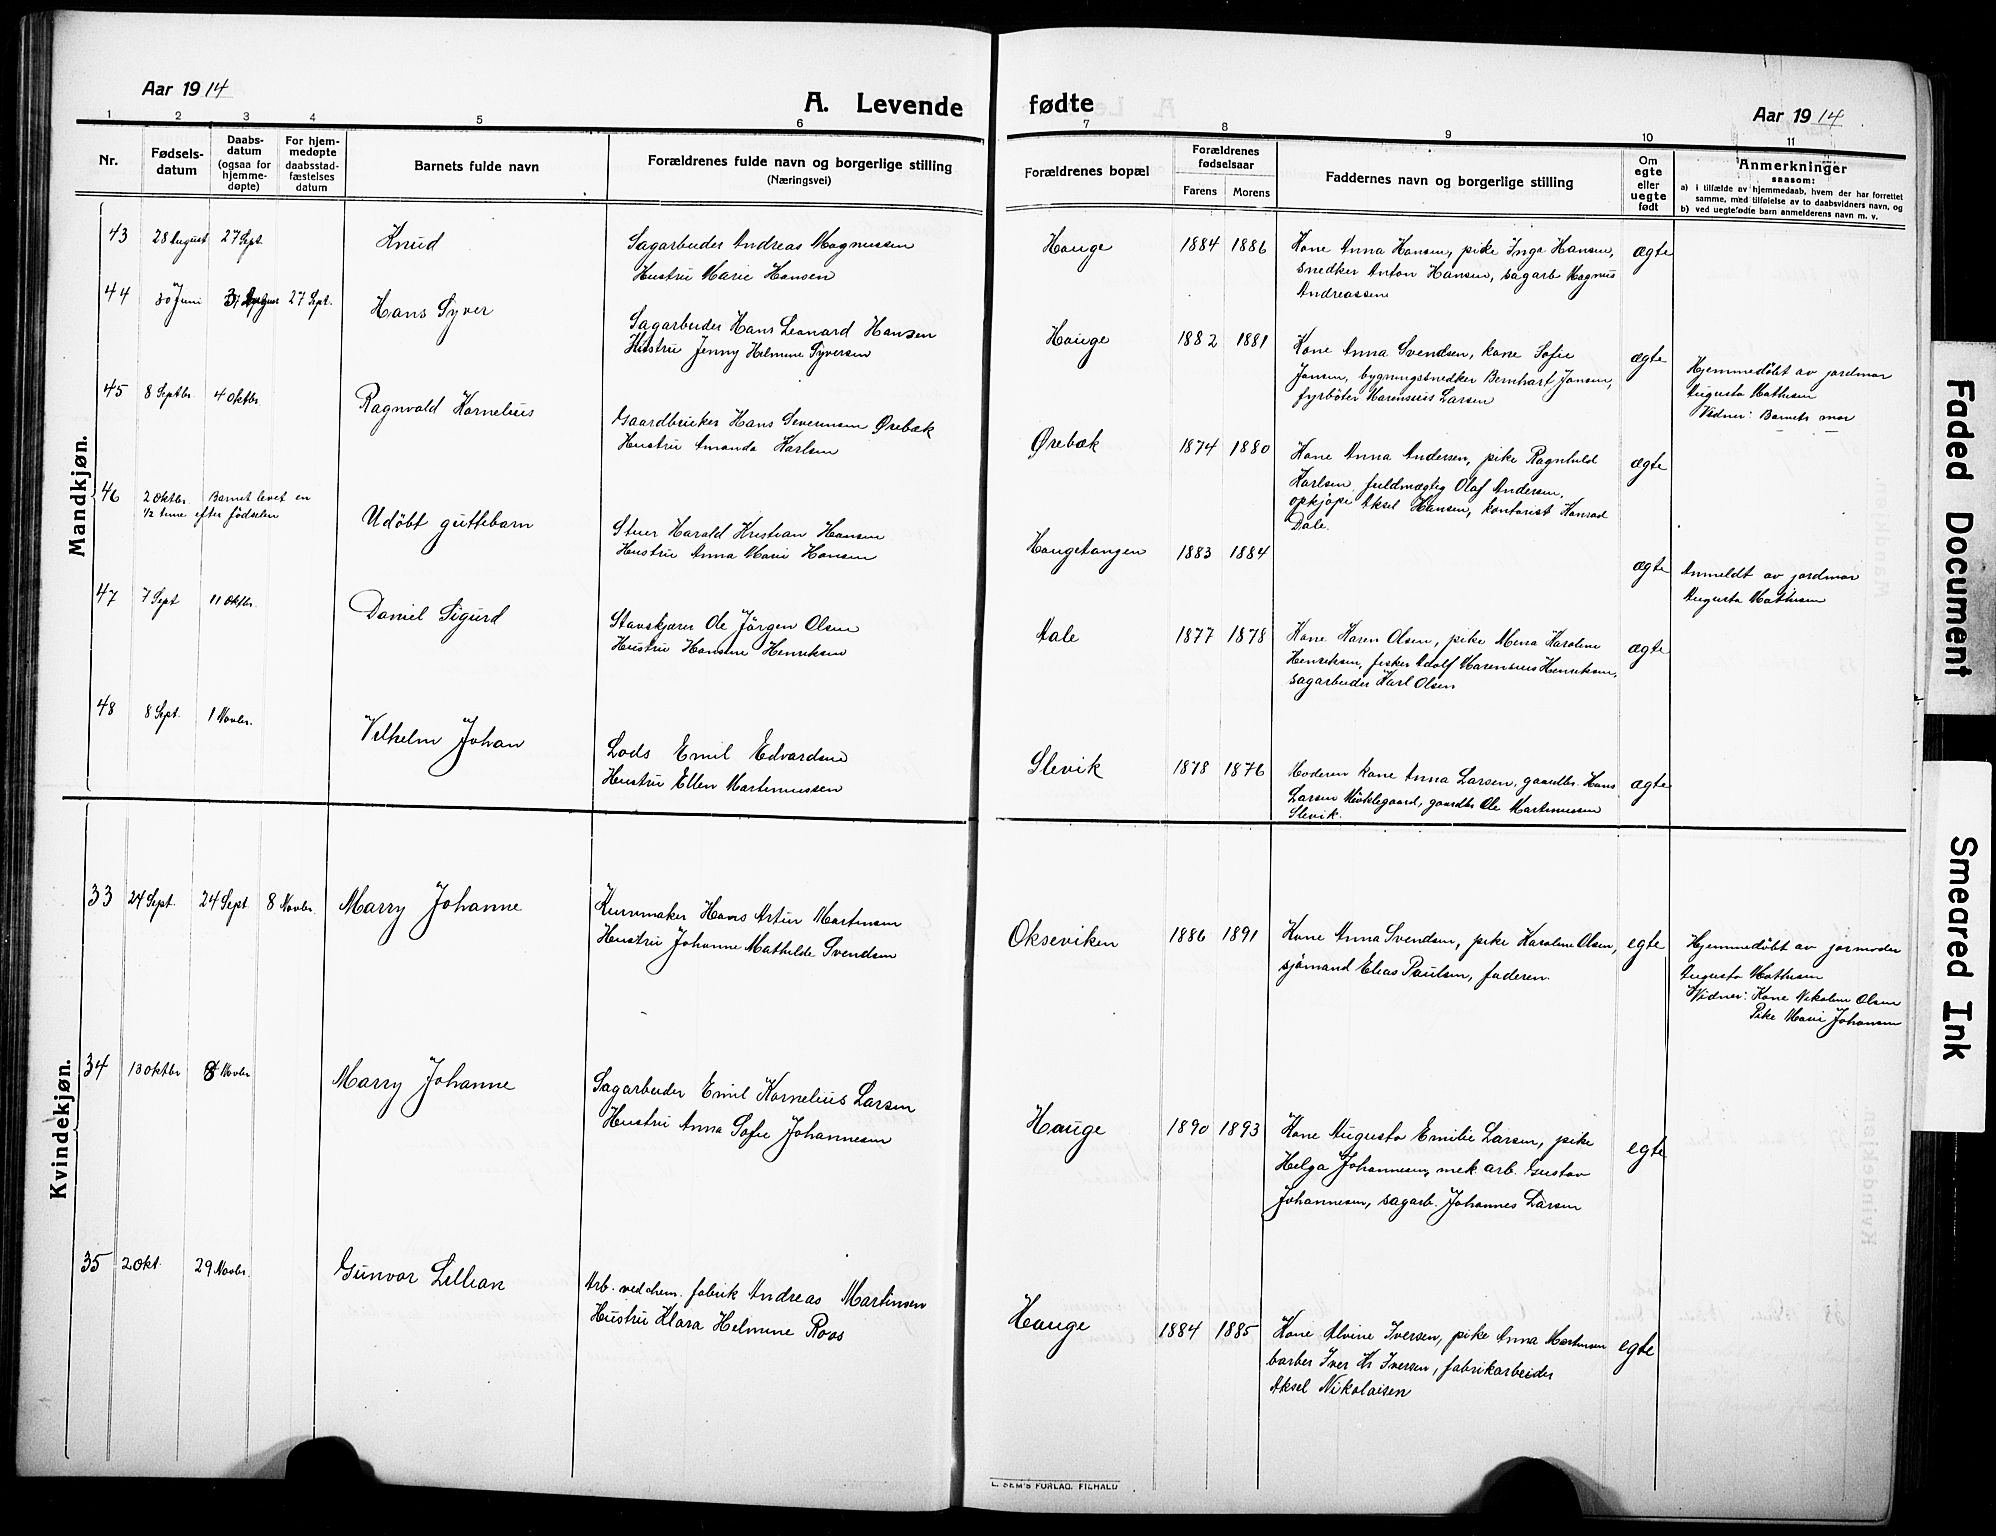 Aar 1914
A. Levende
fødte
Aar 1914
1 2 3 4 5 6 7 8 9 10 11
Nr.
Fødsels-
datum
Daabs-
datum
(ogsaa for
hjemme-
døpte)
For hjem-
medøpte
daabsstad-
fæstelses
datum
Barnets fulde navn
Forældrenes fulde navn og borgerlige stilling
(Næringsvei)
Forældrenes bopæl
Forældrenes
fødselsaar
Farens Morens
Faddernes navn og borgerlige stilling
Om
egte
eller
uegte
født
Anmerkninger
saasom:
a) i tilfælde av hjemmedaab, hvem der har forrettet
samme, med tilføielse av to daabsvidners navn, og
b) ved uegtefødte barn anmelderens navn m. v.
Mandkjøn.
43 28 August 27 Sept. Knud
Sagarbeider Andreas Magnussen
Hustru Marie Hansen
Hauge 1884 1886
Kone Anna Hansen, pike Inga Hansen,
snedker Anton Hansen, sagarb Magnus
Andreassen
ægte
44 30 Juni 31 August 27 Sept. Hans Syver
Sagarbeider Hans Leonard Hansen
Hustru Jenny Helmine Syversen
Hauge 1882 1881
Kone Anna Svendsen, kone Sofie
Jansen, bygningssnedker Bernhart Jansen,
fyrbøter Marensius Larsen
ægte
Hjemmedøbt av jordmor
Augusta Mathisen
Vidner: Barnets mor
45 8 Septbr. 4 Oktbr. Ragnvald Kornelius
Gaardbruker Hans Severinsen Ørebæk
Hustru Amanda Karlsen
Ørebæk 1874 1880
Kone Anna Andersen, pike Ragnhild
Karlsen, fuldmægtig Olaf Andersen,
opkjøpe Aksel Hansen, kontorist Konrad
Dale.
ægte
46 2 Oktbr. Barnet levet en
1/2 time efter fødselen
Udøbt guttebarn
Stuer Harald Kristian Hansen
Hustru Anna Marie Hansen
Haugetangen 1883 1884
ægte
Anmeldt av jordmor
Augusta Mathisen
47 7 Sept 11 Oktbr. Daniel Sigurd
Stavskjærer Ole Jørgen Olsen
Hustru Hansine Henriksen
Aale 1877 1878
Kone Karen Olsen, pike Mena Karoline
Henriksen, fisker Adolf Marensius Henriksen,
sagarbeider Karl Olsen
ægte
48 8 Sept. 1 Novbr. Vilhelm Johan
Lods Emil Edvardsen
Hustru Ellen Martinussen
Slevik 1878 1876
Moderen kone Anna Larsen, gaardbr. Hans
Larsen Vivklegaard, gaardbr Ole Martinussen
Slevik.
ægte
Kvindekjøn.
33 24 Sept. 24 Sept 8 Novbr. Marry Johanne
Kurvmaker Hans Artur Martinsen
Hustru Johanne Mathilde Svendsen
Okseviken 1886 1891
Kone Anna Svendsen, pike Karoline Olsen,
sjømand Elias Paulsen, faderen.
egte
Hjemmedøbt av jormoder
Augusta Mathisen
Vidner: Kone Nikoline Olsen
Pike Marie Johansen
34 13 oktbr 8 Novbr Marry Johanne
Sagarbeider Emil Kornelius Larsen
Hustru Anna Sofie Johannesen
Hauge 1890 1893
Kone Augusta Emilie Larsen, pike
Helga Johannesen, mek. arb. Gustav
Johannesen, sagarb. Johannes Larsen
egte
35 2 Okt. 29 Novbr. Gunvor Lillian
Arb. ved chem. fabrik Andreas Martinsen
Hustru Klara Helmine Roos
Hauge 1884 1885
Kone Alvine Iversen, pike Anna Martinsen
barber Iver Kr Iversen, fabrikarbeider
Aksel Nikolaisen
egte
SEM'S FORLAG. F.HALD
Faded Document
Smeared Ink